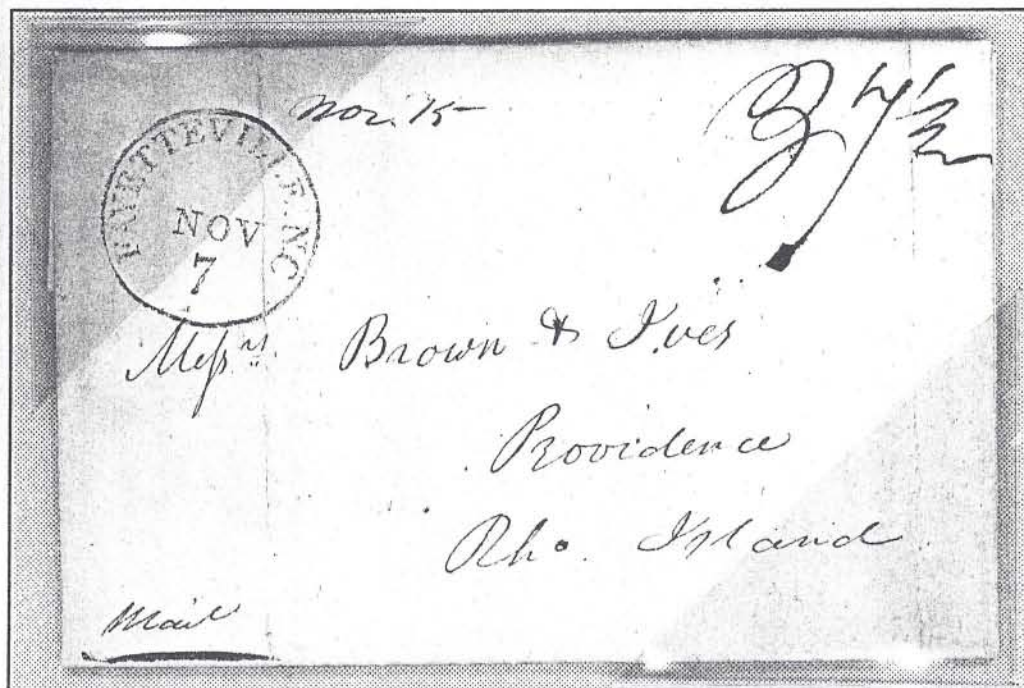 Nov. 15
FAYETTEVILLE. NC
NOV
7
Messrs. Brown & Ives
Providence
Rho. Island
Mail